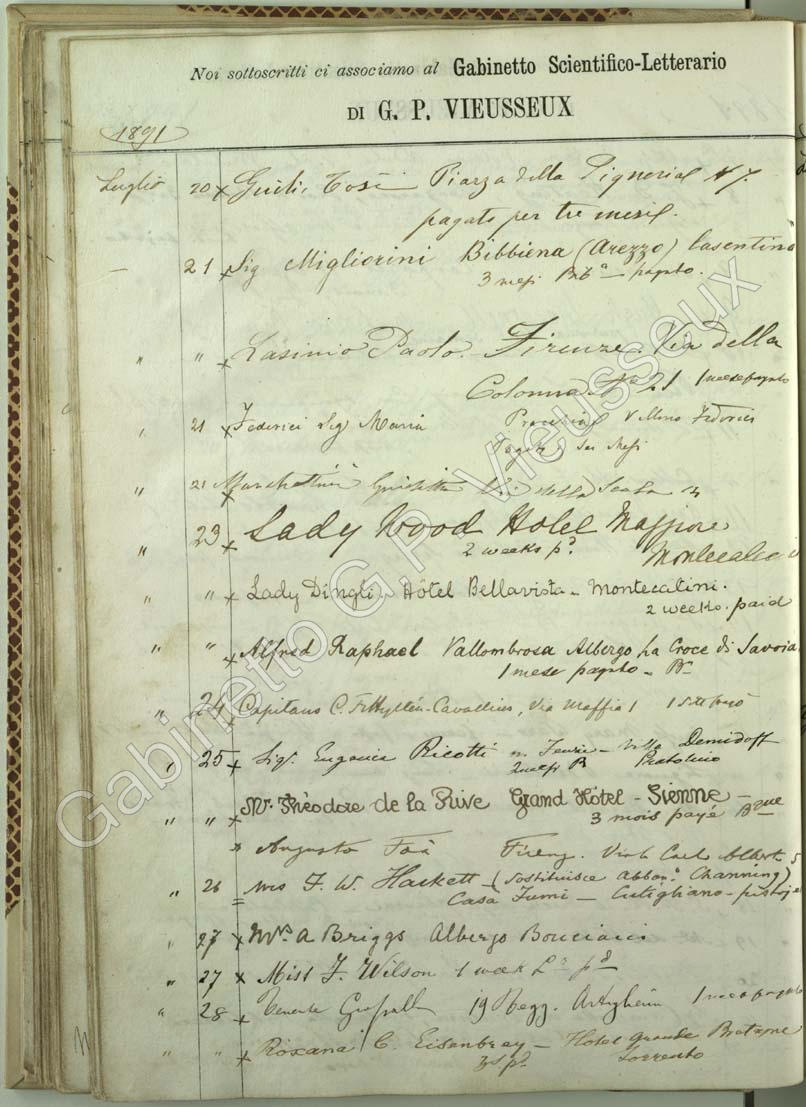 Noi sottoscritti ci associamo al Gabinetto Scientifico-Letterario
DI G. P. VIEUSSEUX
1891
Luglio 20 x Giulio Tosi Piazza della Signoria N 7.
pagato per tre mesi.
— 21 x Sig Migliorini Bibbiena (Arezzo) Casentino
3 mesi pagato.
" " x Lasinio Paolo. Firenze. Via della
Colonna No 21 1 mese pagato
" 21 x Federici Sig Maria Villino Federici
Pagato Sei Mesi
" 21 x Giulietta Via della Scala
" 23 x Lady Wood Hotel Maggiore
2 weeks pd. Montecatini
" " x Lady Dingli. Hôtel Bellavista - Montecatini.
2 weeks. paid
" " x Alfred Raphael Vallombrosa Albergo La Croce di Savoia
1 mese pagato -
" 24 x Capitano C. Hyltén-Cavallius, Via Maffia 1
" 25 x Sigr. Eugenia Ricotti Villa Demidoff
2 mesi Pratolino
" " x Mr. Théodore de la Rive Grand Hôtel - Sienne -
3 mois payé Bque
" Augusto Foà Firenze. Viale Carlo Alberto 5
" 26 = Mrs F. W. Haskett - (Sostituisce Abbon. Channing)
Casa Jumi - Cutigliano - pistoje
" 27 x Mrs A Briggs Albergo Bonciani
" 27 x Miss F. Wilson 1 week pd
" 28 x Tenente 19 Regg. Artiglieria 1 mese pagato
" " x Roxana C. Eisenbrey - Hotel Grande Bretagne
Sorrento
Gabinetto G.P. Vieusseux